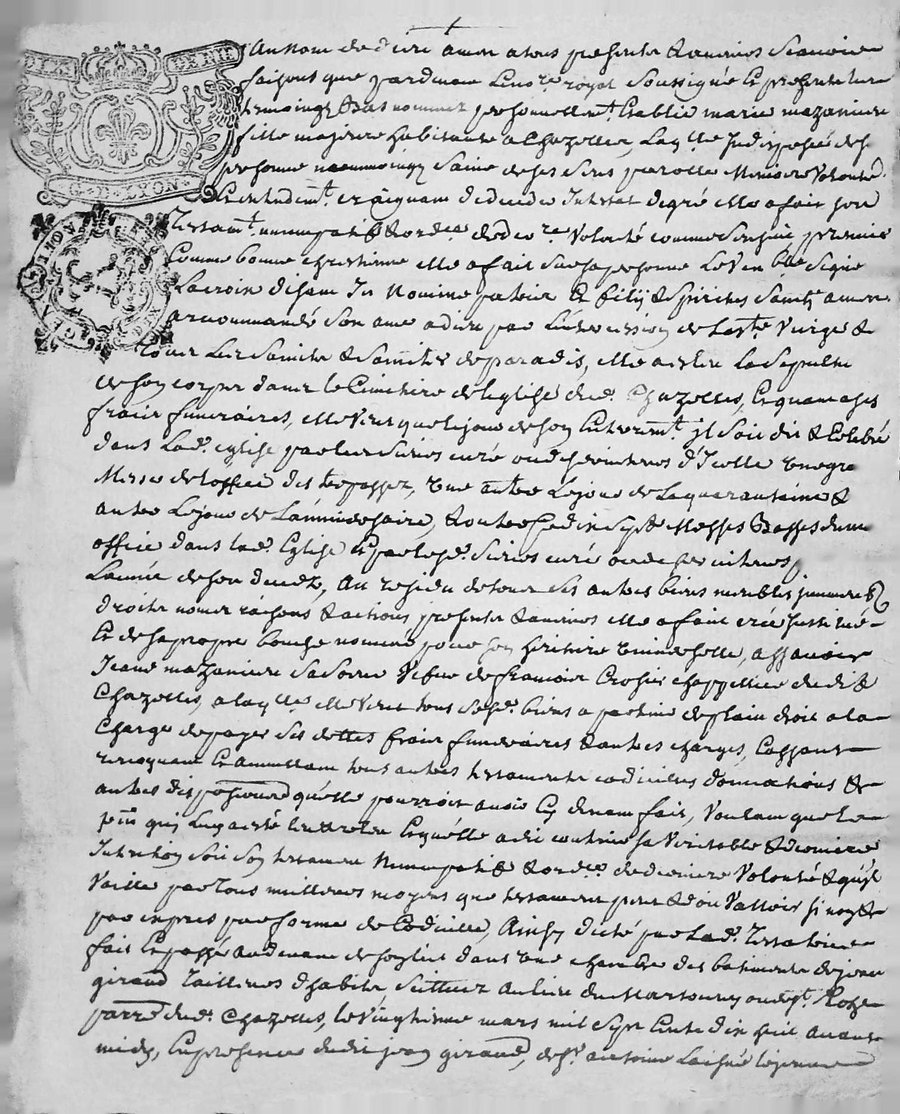 DIX DENIE
G. D. LYON
Au Nom de dieu amen a tous presents & avenirs scavoir
faisons que pardevant le no.re royal soussigné et presents les
temoings bas nommez personnellem.t Etablie marie mazeniere
fille majeure habitante a Chazelles, Laq.lle Indisposée de sa
personne neanmoingz saine de ses sens parolle Memoire Volonté
& Entendem.t craignant deceder Intestat de gré elle a fait son
Testam.t nuncupatif & ord.re de d.re Volonté comme s'ensuit premier
Comme bonne chrestienne elle a fait sur sa personne le Ven.ble signe
La croix disant In Nomine patris Et filij & Spiritus Sancti amen
a recommandé son ame a dieu par l'intercession de La s.te Vierge &
Tous Les Saincts & Sainctes de paradis, elle a eslue la sepulture
de son corps dans le Cimetiere de l'eglise dud. Chazelles, Et quant a ses
fraix funeraires, elle Veut que le jour de son Enterrem.t il soit dit & Celebré
dans Lad. eglise par les sieurs curé ou des d'Icelle Une gr.
Messe de l'office des trepassez, Une autre le jour de La quarantaine &
autre Le jour de L'anniversaire, & outre Ce dix Sept Messes Basses dud.
office dans lad. Eglise Et par lesd. sieurs curé ou
L'année de son deceds, Au residu de tous ses autres biens meubles immeubles
droits noms raisons & actions presents & avenirs elle a fait créé Institué
Et de sa propre bouche nommé pour son heritiere Universelle, assavoir
Jeane mazeniere sa soeur Vefve de francois Crosier chappellier dudit
Chazelles, a laq.lle elle Veut tous sesd. biens apartenir de plain droit a la
Charge de payer ses dettes fraix funeraires & autres charges, Cassant
revoquant Et annullant tous autres testaments codicilles donnations &
autres dispositions qu'elle pourroit avoir Cy devant fait, Voulant que Le
pnt qui Luy a esté leu & releu Et qu'elle a dit contenir sa Veritable & derniere
Intention soit son testament Nuncupatif & ord.re de derniere Volonté & qu'il
Vaille par tous meilleurs moyens que testament peut & doit Valloir si non &
par expres par forme de Codicille, Ainsy dicté par Lad. Testatrice
fait Et passé au devant de son lict dans Une chambre des batiments de jean
giraud Tailleur d'habits scittuez au lieu du ou
parr.e dud. Chazelles, le Vingtieme mars mil Sept Cents dix huit avant
midy, En presence dudit jean giraud, de s.r antoine le jeune